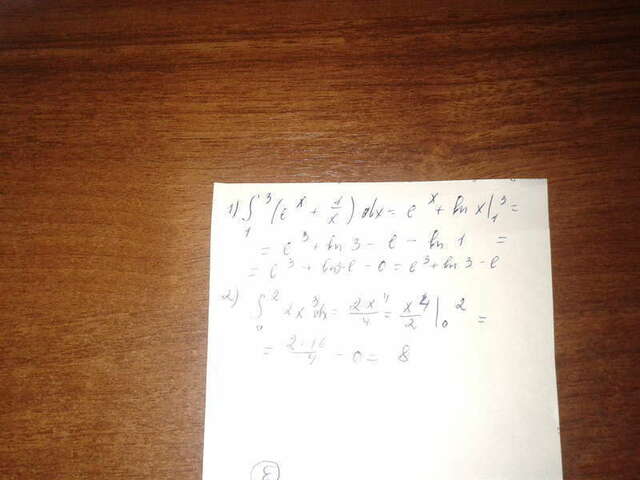 1) ∫₁³ (eˣ + 1/x) dx = eˣ + ln x |₁³ =
= e³ + ln 3 - e - ln 1 =
= e³ + ln 3 - e - 0 = e³ + ln 3 - e
2) ∫₀² 2x³ dx = 2x⁴/4 = x⁴/2 |₀² =
= 2·16/4 - 0 = 8